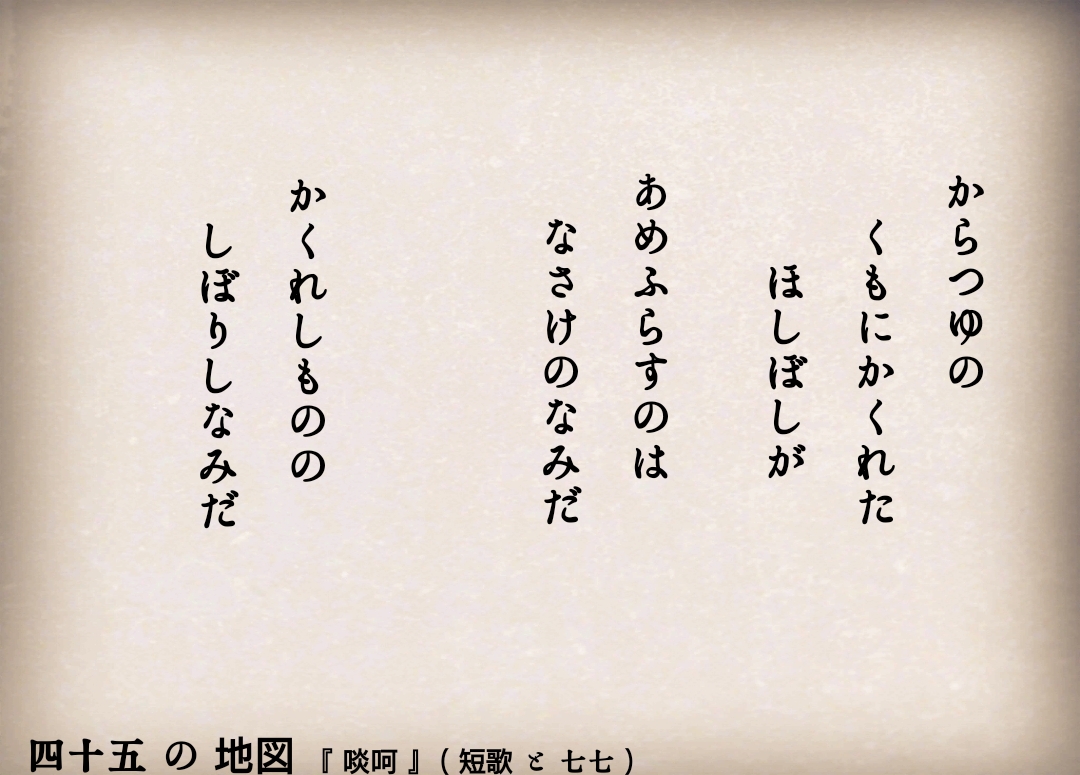 からつゆの
くもにかくれた
ほしぼしが
あめふらすのは
なさけのなみだ
かくれしものの
しぼりしなみだ
四十五 の 地図 『 啖呵 』 ( 短歌 と 七七 )